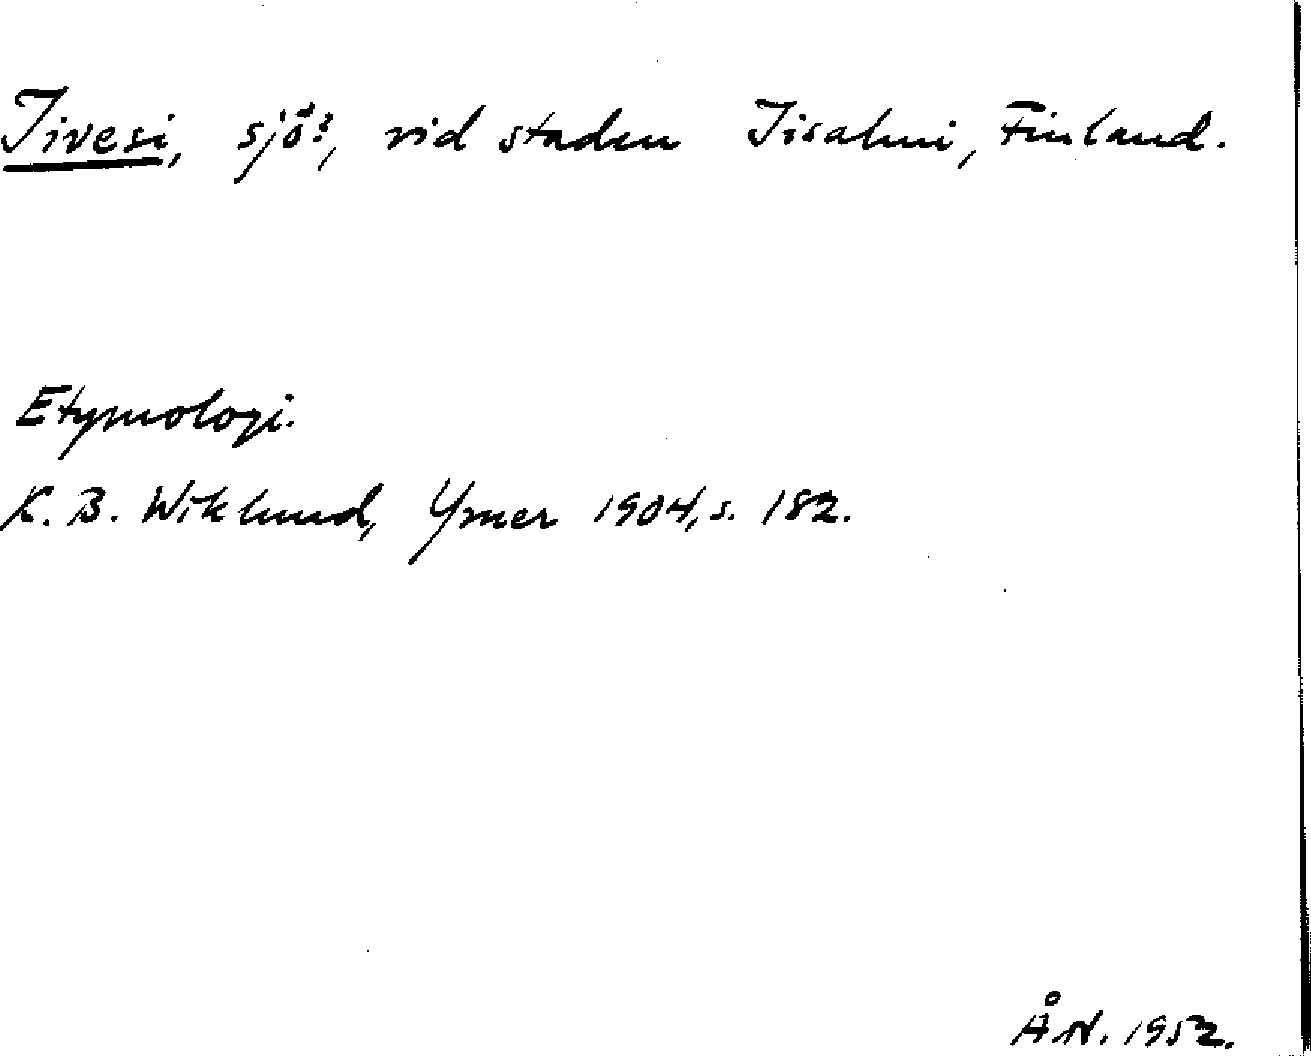 Iivesi, sjö?, vid staden Iisalmi, Finland.
Etymologi.
K. B. Wiklund, Ymer 1904, s. 182.
Å N. 1952.